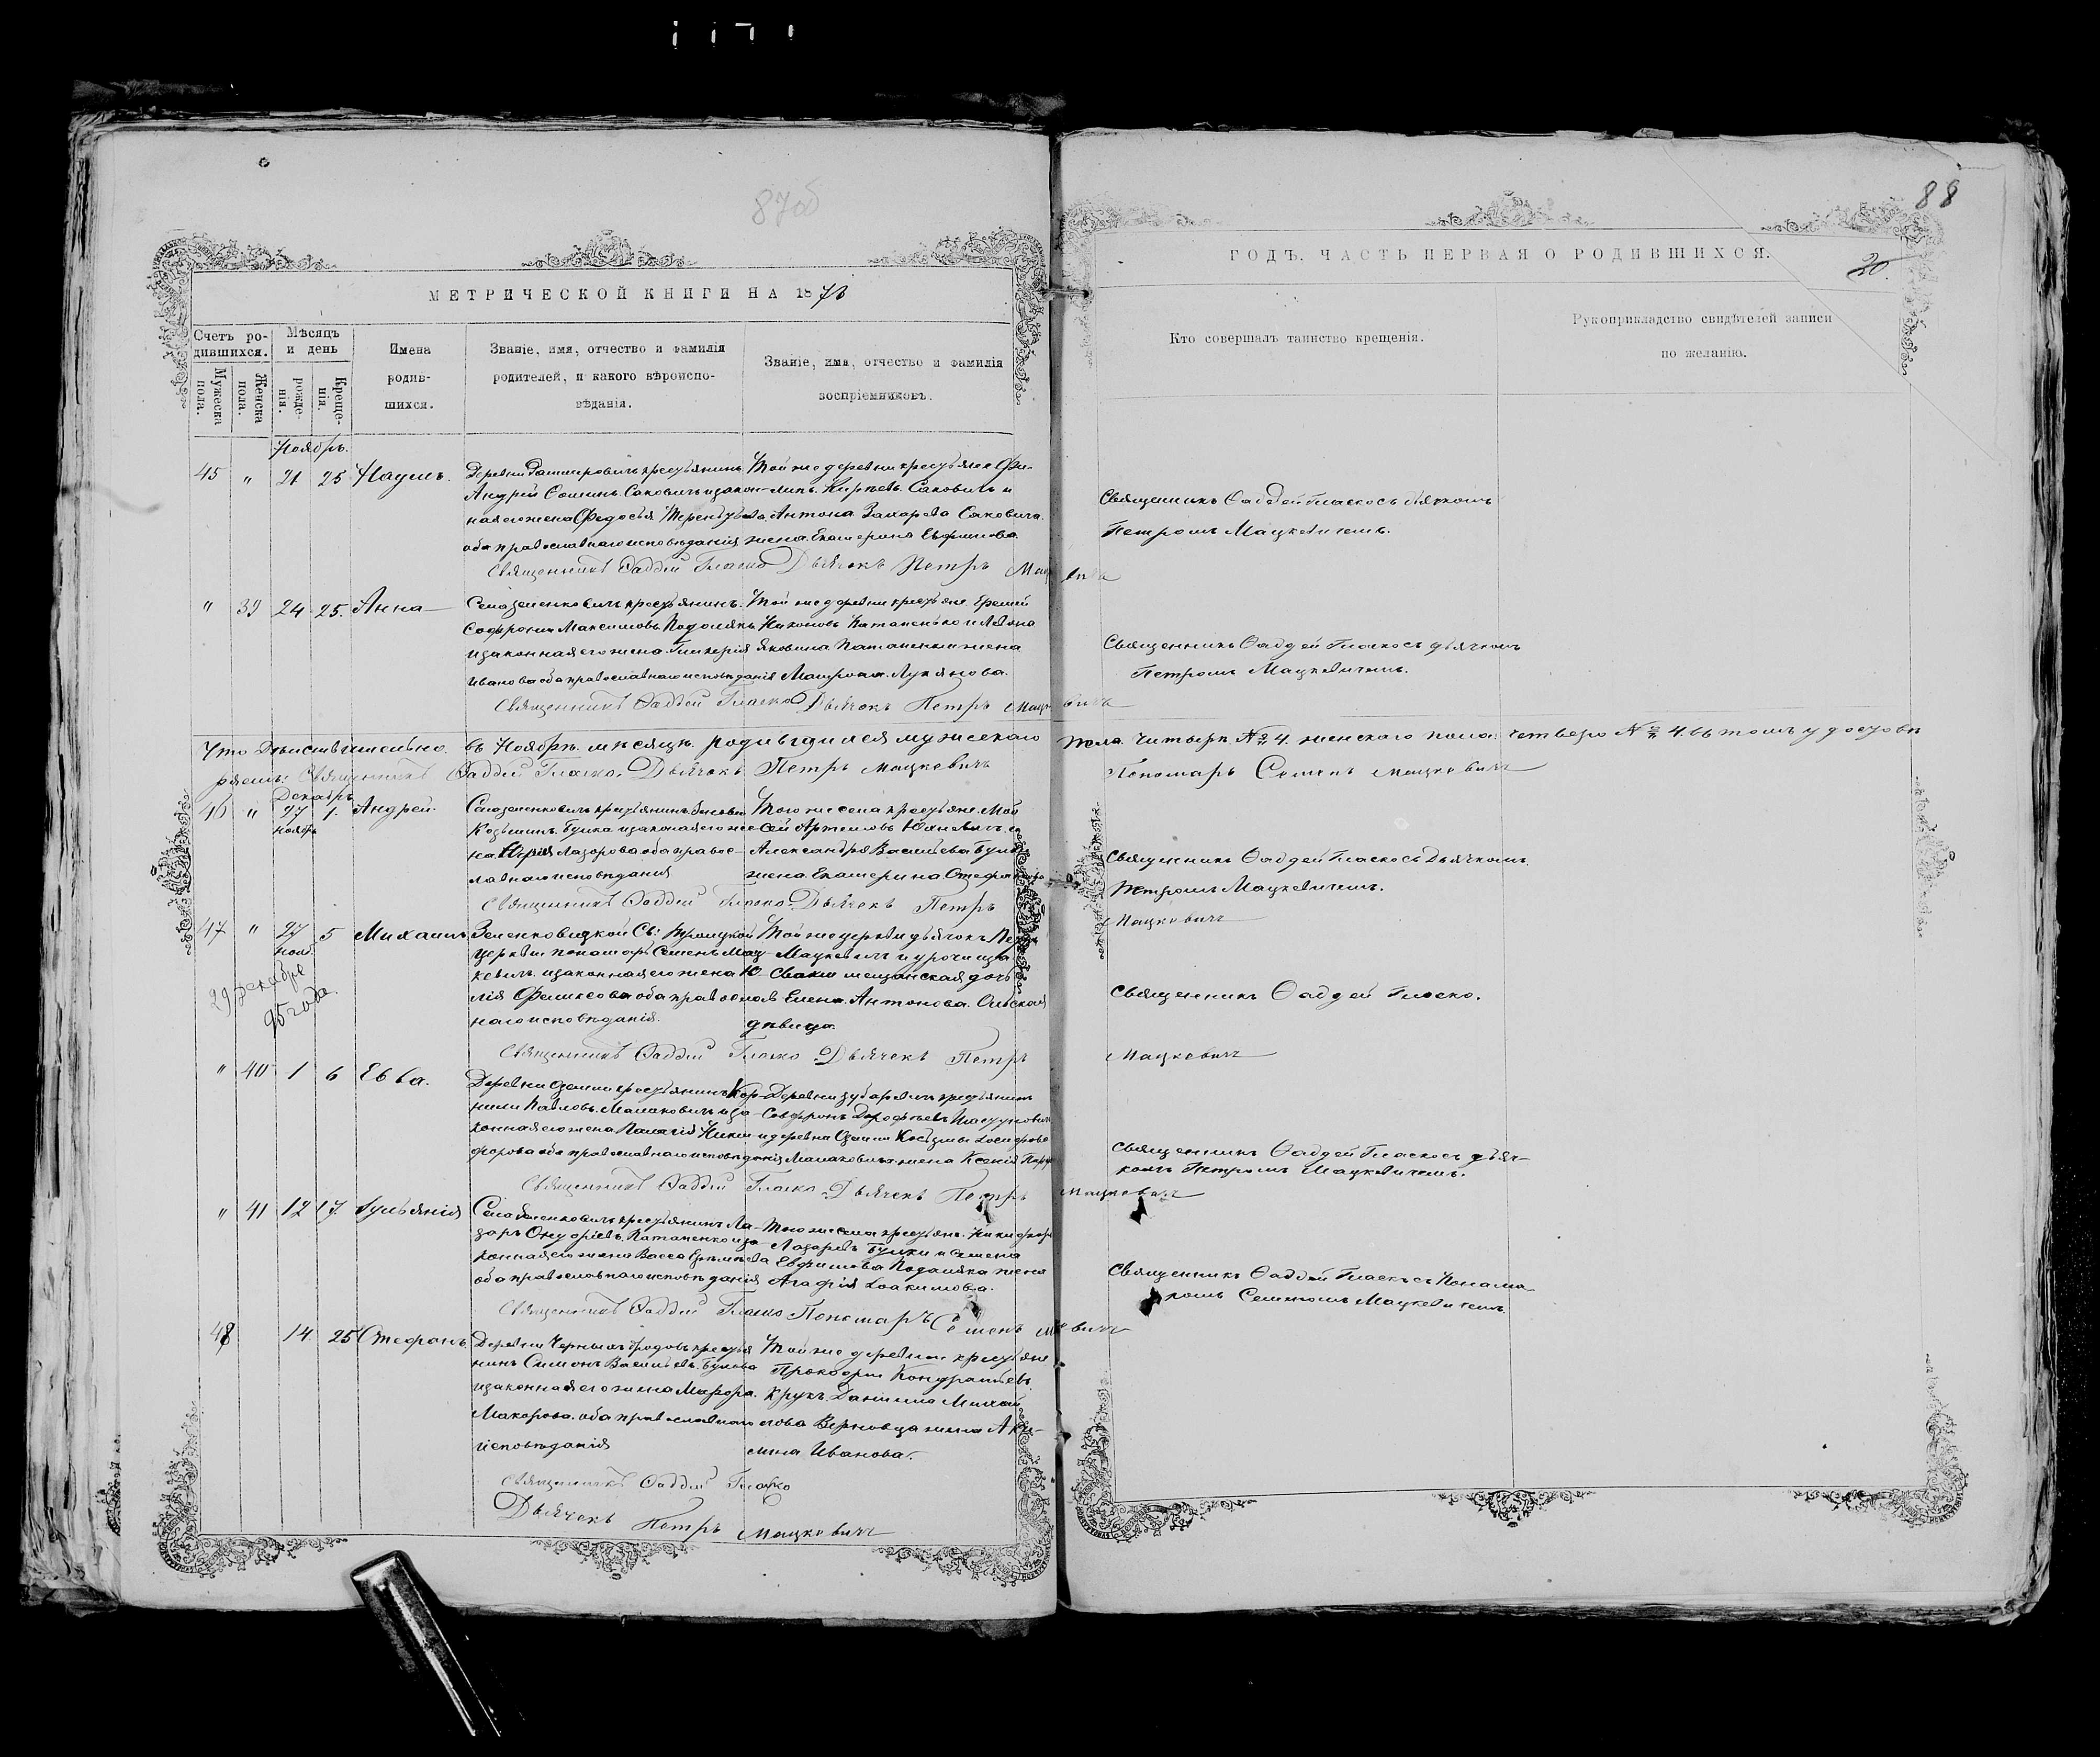 87об
МЕТРИЧЕСКОЙ КНИГИ НА 1873
Счетъ ро-
дившихся.
Мужеска пола.
Женска пола.
Мѣсяцъ и день
рожде-
нія.
Креще-
нія.
Имена
родив-
шихся.
Званіе, имя, отчество и фамилія
родителей, и какого вѣроиспо-
вѣданія.
Званіе, имя, отчество и фамилія
воспріемниковъ.
Ноябрь.
45 " 21 25 Наумъ.
Деревни крестьянинъ
Андрей Саковичъ и закон-
ная его жена Федосья Терентьева
оба православнаго исповѣданія
Той же деревни крестьяне Фи-
липъ Кирѣевъ Саковичъ и
Антона Захарева Саковича
жена Екатерина Евфимова.
Священникъ Ѳаддей Гласко Дьячокъ Петръ
" 39 24 25. Анна
Села Зеленковичъ крестьянинъ
Софроній Максимовъ Подолякъ
и законная его жена Гликерія
Иванова оба православнаго исповѣданія
Той же деревни крестьяне Еремей
Никоновъ Патапенько и Леона
Яковлева Патапенки жена
Матрона Лукянова.
Священникъ Ѳаддей Гласко Дьячокъ Петръ Мацкевичъ
Что дѣйствительно въ Ноябрѣ мѣсяцѣ родившихся мужескаго
пола четыре № 4. женскаго пола четверо № 4. въ томъ удостовѣ
ряемъ: Священникъ Ѳаддей Гласко. Дьячокъ Петръ Мацкевичъ
Пономарь Семенъ Мацкевичъ
Декабрь
46 " 27 ноябрь 1. Андрей.
Села Зеленковичъ крестьянинъ
Козьминъ Булка и законная его же-
на Лазорова оба правос-
лавнаго исповѣданія
Того же села крестьяне Мои
сей Артемовъ
Александра Васильева Булки
жена Екатерина Стефанова
Священникъ Ѳаддей Гласко Дьячекъ Петръ
Мацкевичъ
47 " 27 нояб. 5 Михаилъ
29 декабря
95 года
Зеленковицкой Св: Троицкой
церкви пономарь Семенъ Мац-
кевичъ и законная его жена Ю-
лія Феликсова оба православ
наго исповѣданія.
Той же церкви дьячокъ Петръ
Мацкевичъ и урочища
мещанская дочь
Елена Антонова
дѣвица.
Священникъ Ѳаддей Гласко Дьячекъ Петръ
Мацкевичъ
" 40 1 6 Евва.
Деревни крестьянинъ Кор-
нили Павловъ Малаковичъ и за-
конная его жена Пелагія Ники-
форова оба православнаго исповѣданія
Деревни Зубаревичъ крестьянинъ
Софронъ Дорофеевъ
и деревни Козьмы
Малаковича жена Ксенія
Священникъ Ѳаддей Гласко Дьячекъ Петръ
Мацкевичъ
" 41 12 17 Іульянія
Села Зеленковичъ крестьянинъ Ла-
зарь Онуфріевъ Патапенко и за-
конная его жена Васса
оба православнаго исповѣданія
Того же села крестьяне Никифоръ
Лазоревъ Булки и Семена
Евфимова Подоляка жена
Агафія Іоакимова.
Священникъ Ѳаддей Гласко Пономарь Семенъ
48 14 25 Стефанъ
Деревни Черныхъ Бродовъ крестья
нинъ Симонъ Васильевъ
и законная его жена Мавра
Макарова оба православнаго
исповѣданія
Той же деревни крестьяне
Прокофій Кондратьевъ
Крукъ Даніила Михай
лова жена Аку-
лина Иванова.
Священникъ Ѳаддей Гласко
Дьячекъ Петръ Мацкевичъ
88
ГОДЪ. ЧАСТЬ ПЕРВАЯ О РОДИВШИХСЯ.
20.
Кто совершалъ таинство крещенія.
Рукоприкладство свидѣтелей записи
по желанію.
Священникъ Ѳаддей Гласко съ дьячкомъ
Петромъ Мацкевичемъ.
Священникъ Ѳаддей Гласко съ дьячкомъ
Петромъ Мацкевичемъ.
Священникъ Ѳаддей Гласко съ Дьячкомъ
Петромъ Мацкевичемъ.
Священникъ Ѳаддей Гласко.
Священникъ Ѳаддей Гласко съ дьяч-
комъ Петромъ Мацкевичемъ.
Священникъ Ѳаддей Гласко съ Понома-
ромъ Семеномъ Мацкевичемъ